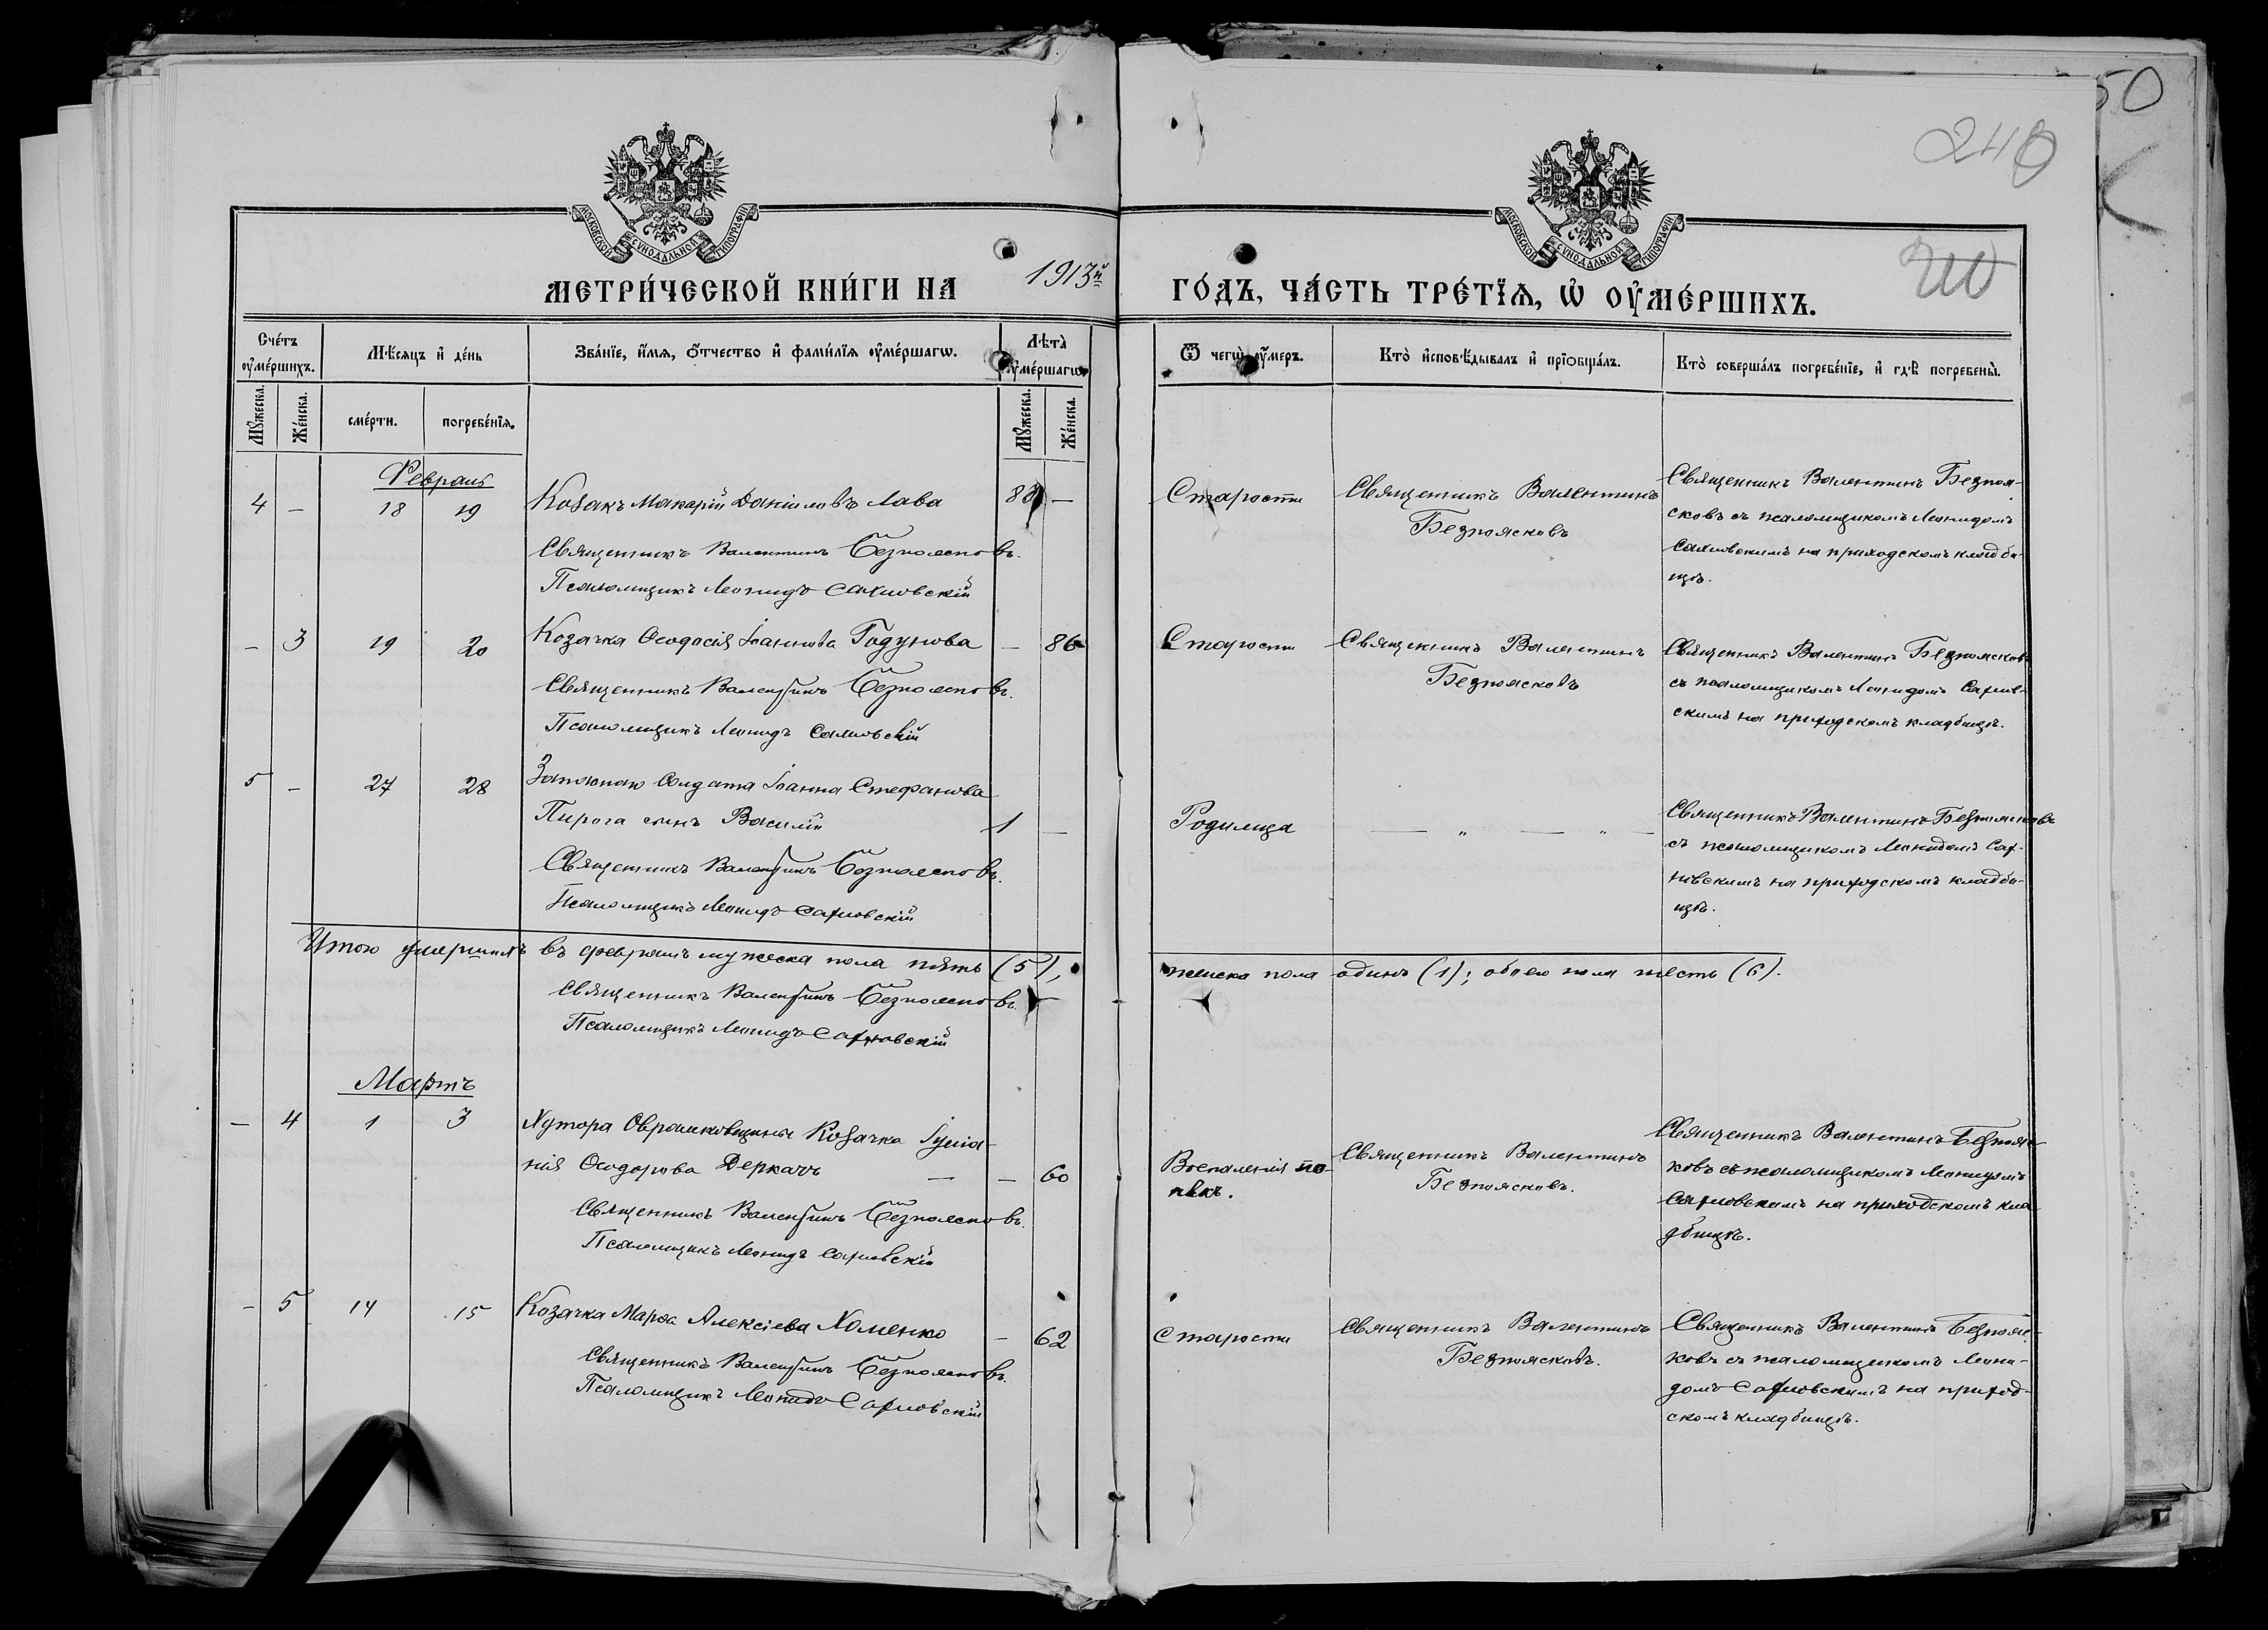 50
240
МОСКОВСКОЙ СУНОДАЛЬНОЙ ТИПОГРАФІИ
МОСКОВСКОЙ СУНОДАЛЬНОЙ ТИПОГРАФІИ
МЕТРИ́ЧЕСКОЙ КНИ́ГИ НА 1913й ГО́ДЪ, ЧА́СТЬ ТРЕ́ТЇѦ, Ѡ҆ ОУ҆МЕ́РШИХЪ.
Сче́тъ оу҆ме́ршихъ.
Мѣ́сяцъ и҆ де́нь
Зва́нїе, и҆́мѧ, ѻ҆́тчество и҆ фами́лїѧ оу҆ме́ршагѡ.
Лѣ́та оу҆ме́ршагѡ
Ѿ чегѡ̀ оу҆́меръ.
Кто̀ и҆сповѣ́дывалъ и҆ прїѻбща́лъ.
Кто̀ соверша́лъ погребе́нїе, и҆ гдѣ̀ погребены̀.
Мꙋ́жеска.
Же́нска.
сме́рти.
погребе́нїѧ.
Мꙋ́жеска.
Же́нска.
Февраль
4 — 18 19 Козакъ Макарій Даніиловъ Лава —
Священникъ Валентинъ Безпоясковъ.
Псаломщикъ Леонидъ Сахновскій
Старости
Священникъ Валентинъ
Безпоясковъ
Священникъ Валентинъ Безпоя-
сковъ съ псаломщикомъ Леонидомъ
Сахновскимъ на приходскомъ кладби-
щѣ.
— 3 19 20 Козачка Ѳеодосія Іоаннова Годунова — 86
Священникъ Валентинъ Безпоясковъ.
Псаломщикъ Леонидъ Сахновскій
Старости
Священникъ Валентинъ
Безпоясковъ
Священникъ Валентинъ Безпоясковъ
съ псаломщикомъ Леонидомъ Сахнов-
скимъ на приходскомъ кладбищѣ.
5 — 27 28 Запасного Солдата Іоанна Стефанова
Пирога сынъ Василій 1 —
Священникъ Валентинъ Безпоясковъ.
Псаломщикъ Леонидъ Сахновскій
Родимца
— „ — „ —
Священникъ Валентинъ Безпоясковъ
съ псаломщикомъ Леонидомъ Сах-
новскимъ на приходскомъ кладби-
щѣ.
Итого умершихъ въ февралѣ мужеска пола пять (5), женска пола одинъ (1); обоего пола шесть (6).
Священникъ Валентинъ Безпоясковъ.
Псаломщикъ Леонидъ Сахновскій
Мартъ
— 4 1 3 Хутора Оврашковщины Козачка
Ѳеодорова Деркачъ — — 60
Священникъ Валентинъ Безпоясковъ.
Псаломщикъ Леонидъ Сахновскій
Воспаленія по-
чекъ.
Священникъ Валентинъ
Безпоясковъ.
Священникъ Валентинъ Безпояс-
ковъ съ псаломщикомъ Леонидомъ
Сахновскимъ на приходскомъ кла-
дбищѣ.
— 5 14 15 Козачка Марѳа Алексіева Хоменко — 62
Священникъ Валентинъ Безпоясковъ.
Псаломщикъ Леонидъ Сахновскій
Старости
Священникъ Валентинъ
Безпоясковъ.
Священникъ Валентинъ Безпояс-
ковъ съ псаломщикомъ Леони-
домъ Сахновскимъ на приход-
скомъ кладбищѣ.